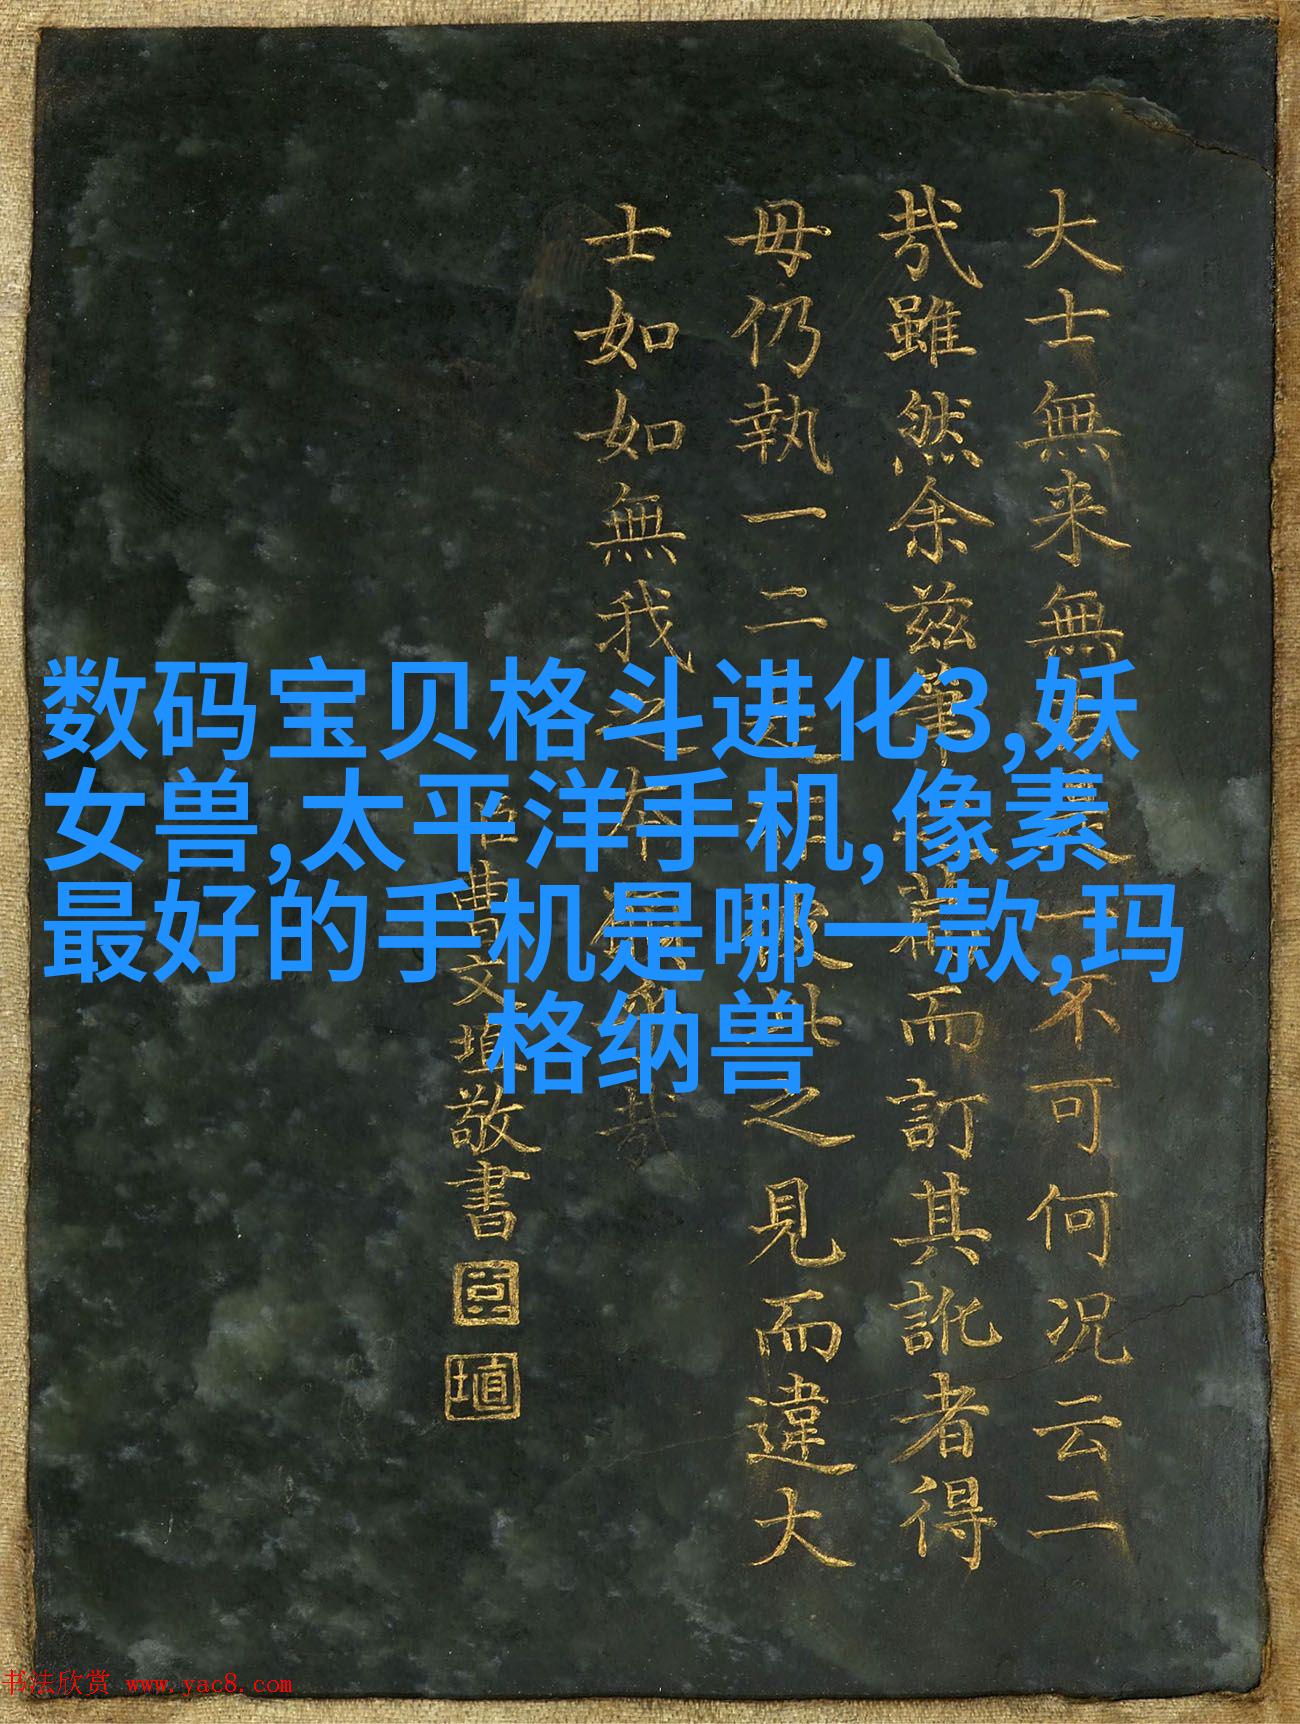 数码宝贝格斗进化3,妖
女兽,太平洋手机,像素
最好的手机是哪一款,玛
格纳兽
大士無来無一不可何况云二
哉雖然余兹而訂其訛者得
毋仍執一二之見而違大
士如如無我之哉
臣曹文埴敬書
臣
埴
书法欣赏 www.yac8.com